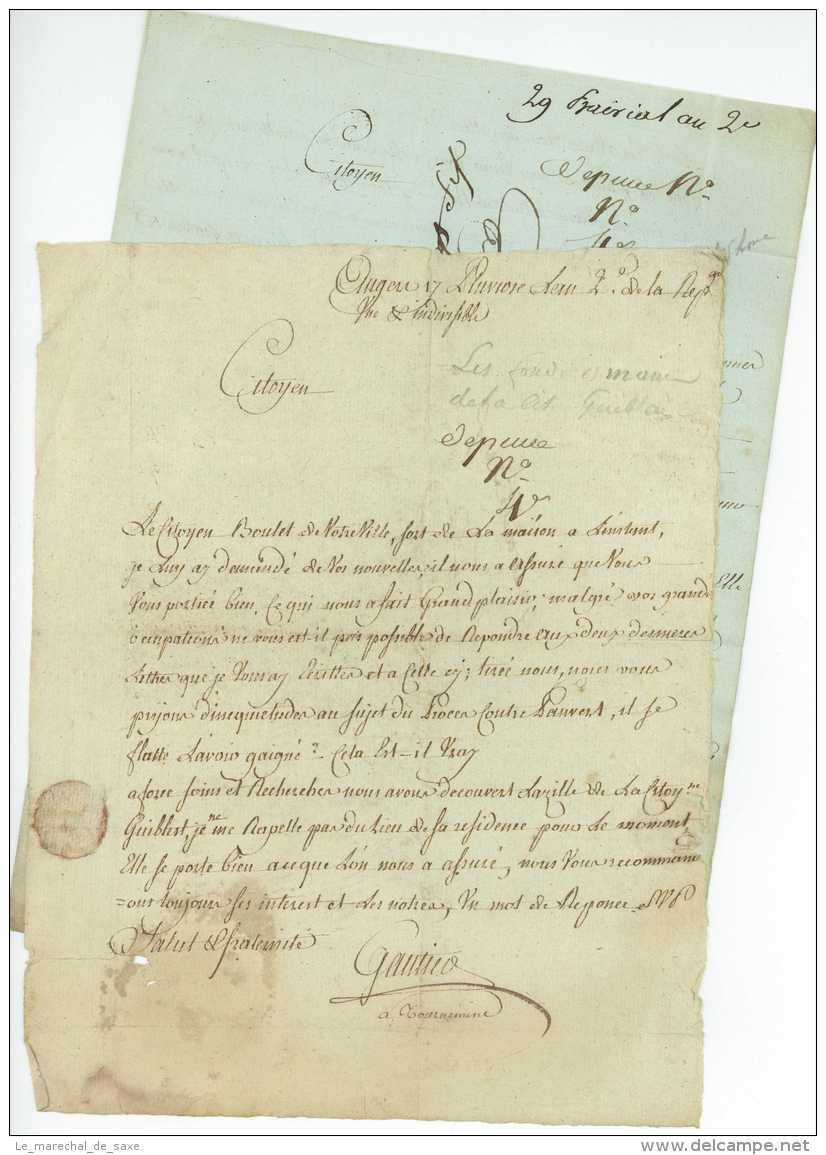 29 Prairial an 2e
Citoyen
Depense No
No
Angers 17 Pluviose Lan 2e de la Repque
Une & Indivisible
Les
Citoyen
de la Cit. Guibl
Depense
No
Le Citoyen Boulet de Notre Ville, sort de La maison a Linstent,
je Luy ay demendé de Vos nouvelles, il nous a assuré que Vous
Vous portiée bien, Ce qui nous a fait Grand plaisir; malgré vos grand
ocupations ne vous est-il pas possible de Repondre aux deux dernieres
Lettres que je Vous ay Ecrittes et a Celle cy; tirée nous, nous vous
prijons dinequietudes au sujet du Proces Contre Pauvert, il se
flatte Lavoir gaigné. Cela Est-il Vray
a force soins et Recherches nous avons decouvert Lazille de La Citoyne
Guiblest, je ne me Rapelle pas du Lieu de sa residence pour le moment
Elle se porte bien a ce que L'on nous a assuré, nous Vous recomman
=ons toujours ses interest et Les notres, Un mot de Reponce SVP
Salut & fraternité
Gautier
a Tournemine
Elle
Le_marechal_de_saxe
www.delcampe.net